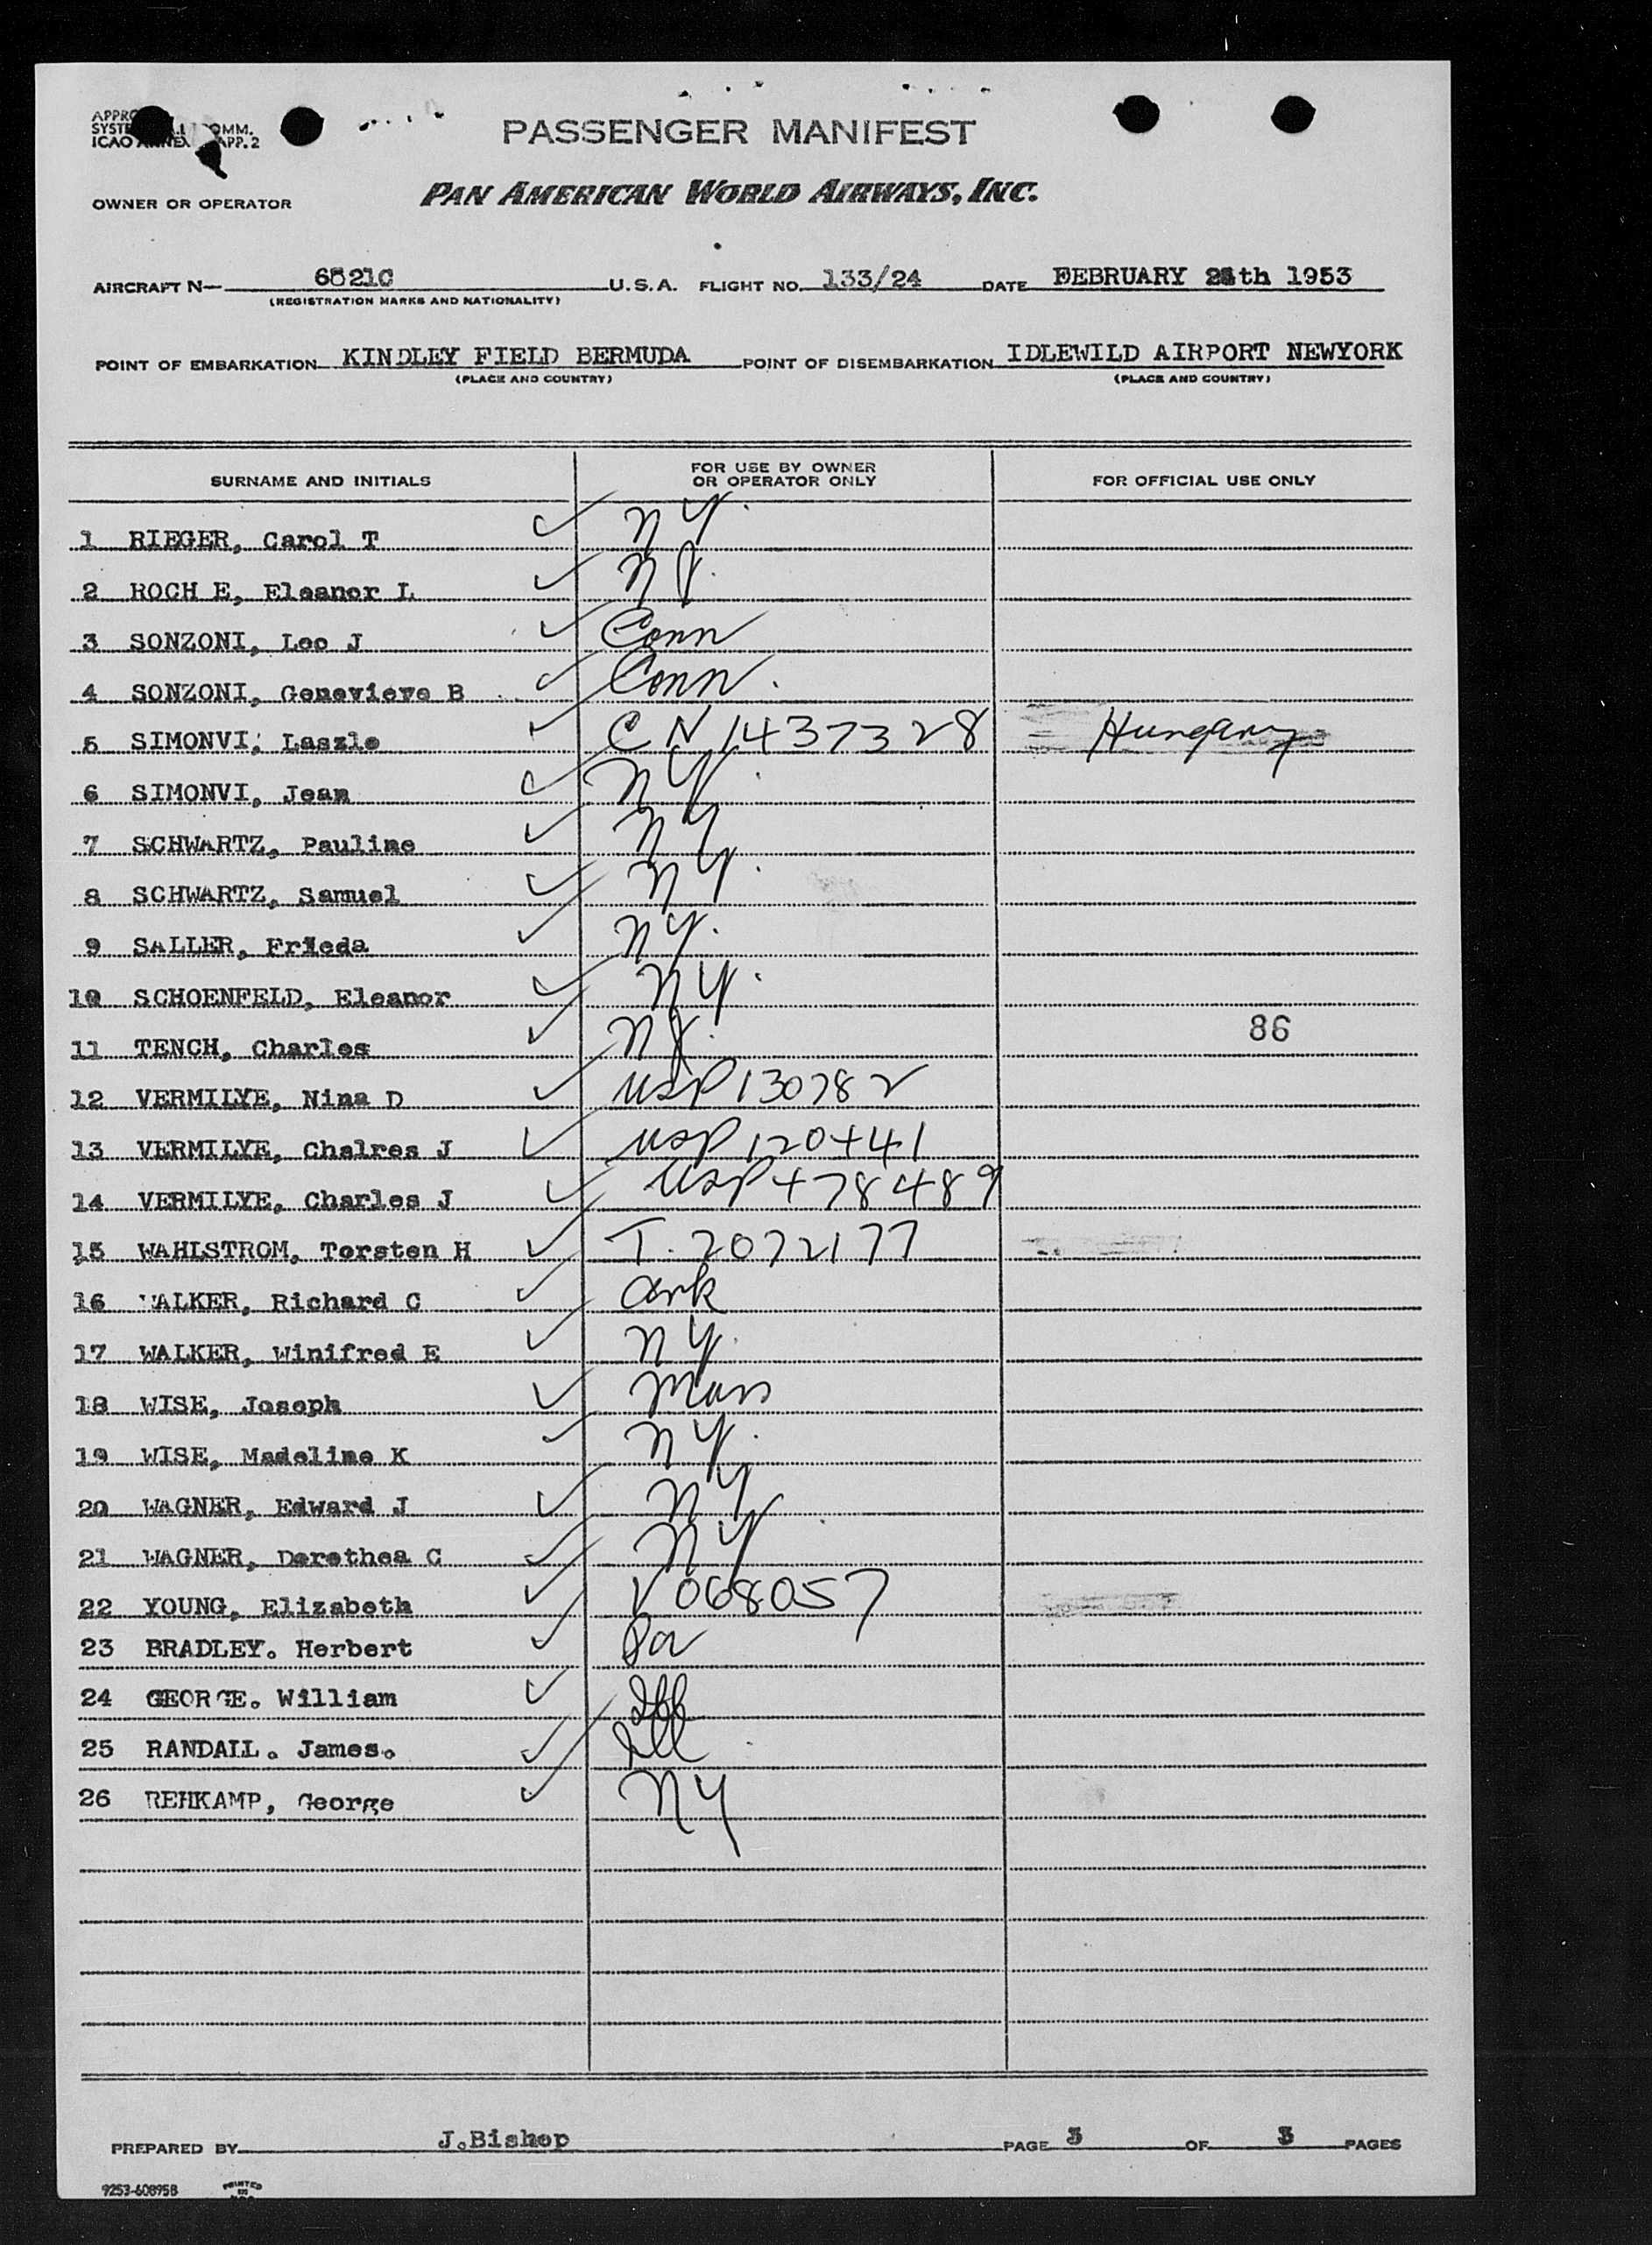 PASSENGER MANIFEST
ICAO APP. 2
OWNER OR OPERATOR PAN AMERICAN WORLD AIRWAYS, INC.
AIRCRAFT N— 6521C U.S.A. FLIGHT NO. 133/24 DATE FEBRUARY th 1953
(REGISTRATION MARKS AND NATIONALITY)
POINT OF EMBARKATION KINDLEY FIELD BERMUDA POINT OF DISEMBARKATION IDLEWILD AIRPORT NEWYORK
(PLACE AND COUNTRY) (PLACE AND COUNTRY)
SURNAME AND INITIALS FOR USE BY OWNER OR OPERATOR ONLY FOR OFFICIAL USE ONLY
1 RIEGER, Carol T NY.
2 ROCH E, Eleanor L NJ.
3 SONZONI, Leo J Conn
4 SONZONI, Genevieve B Conn.
5 SIMONVI, Laszlo CN 1437328 Hungary
6 SIMONVI, Jean NY.
7 SCHWARTZ, Pauline NY
8 SCHWARTZ, Samuel NY.
9 SALLER, Frieda NY.
10 SCHOENFELD, Eleanor NY.
86
11 TENCH, Charles NJ.
12 VERMILYE, Nina D USP 130782
13 VERMILYE, Chalres J USP 120441
14 VERMILYE, Charles J USP 478489
15 WAHLSTROM, Torsten H T. 2072177
16 WALKER, Richard C Ark
17 WALKER, Winifred E NY.
18 WISE, Joseph Mass
19 WISE, Madeline K NY.
20 WAGNER, Edward J NY
21 WAGNER, Dorothea C NY
22 YOUNG, Elizabeth V 068057
23 BRADLEY. Herbert Pa
24 GEORGE. William Ill
25 RANDALL. James. Ill
26 REHKAMP, George NY
PREPARED BY J.Bishop PAGE 3 OF 3 PAGES
9253-60895B PRINTED IN